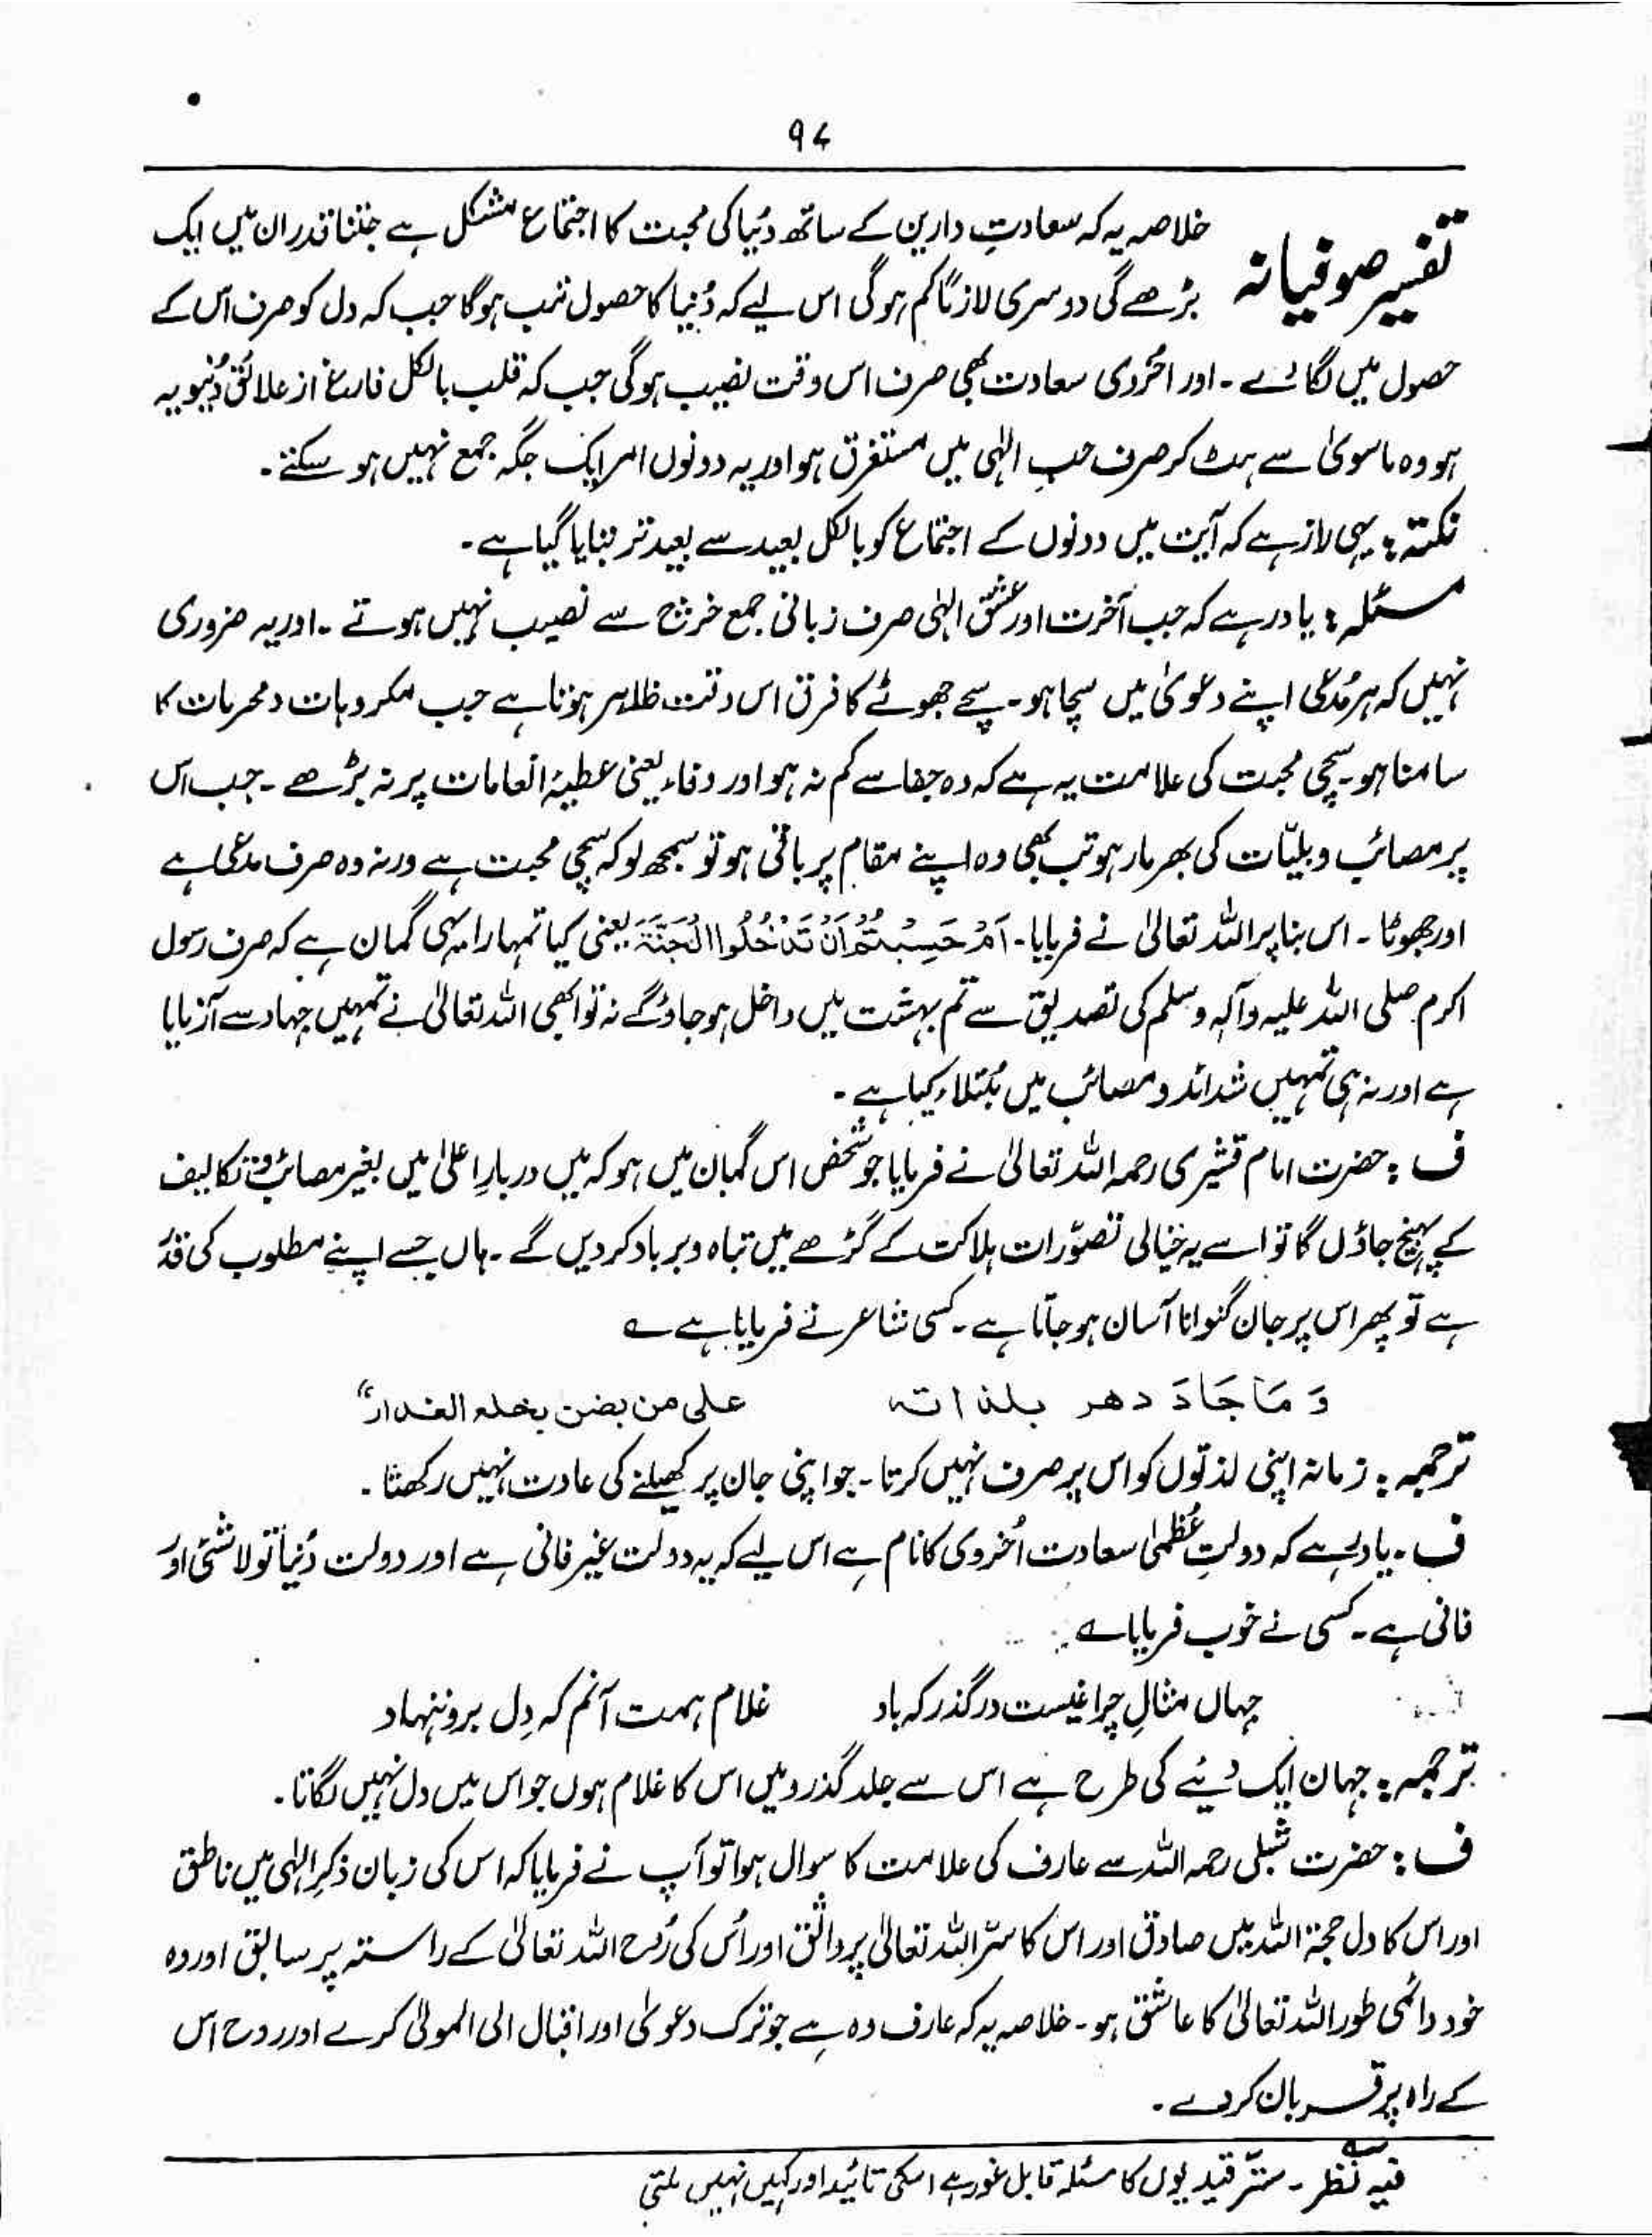 ۹۷
تفسیر صوفیانہ
خلاصہ یہ کہ سعادتِ دارین کے ساتھ دُنیا کی محبت کا اجتماع مشکل ہے جتنا قدر ان میں ایک
بڑھے گی دوسری لازمًا کم ہوگی اس لیے کہ دُنیا کا حصول تب ہوگا جب کہ دل کو صرف اس کے
حصول میں لگائے ۔ اور اخُروی سعادت بھی صرف اس وقت نصیب ہوگی جب کہ قلب بالکل فارغ از علائق دُنیویہ
ہو وہ ماسویٰ سے ہٹ کر صرف حبِ الٰہی میں مستغرق ہو اور یہ دونوں امر ایک جگہ جمع نہیں ہو سکتے ۔
نکتہ : یہی راز ہے کہ آیت میں دونوں کے اجتماع کو بالکل بعید سے بعید تر بتایا گیا ہے ۔
مسئلہ : یاد رہے کہ حب آخرت اور عشق الٰہی صرف زبانی جمع خرچ سے نصیب نہیں ہوتے ۔ اور یہ ضروری
نہیں کہ ہر مُدعی اپنے دعویٰ میں سچا ہو ۔ سچے جھوٹے کا فرق اس وقت ظاہر ہوتا ہے جب مکروہات و محرمات کا
سامنا ہو ۔ سچی محبت کی علامت یہ ہے کہ وہ جفا سے کم نہ ہو اور وفاء یعنی عطیۂ انعامات پر نہ بڑھے ۔ جب اس
پر مصائب و بلیّات کی بھر مار ہو تب بھی وہ اپنے مقام پر باقی ہو تو سمجھ لو کہ سچی محبت ہے ورنہ وہ صرف مدعی ہے
اور جھوٹا ۔ اس بنا پر اللہ تعالیٰ نے فرمایا ۔ اَمْ حَسِبْتُمْ اَنْ تَدْخُلُوا الْجَنَّةَ یعنی کیا تمہارا یہی گمان ہے کہ صرف رسول
اکرم صلی اللہ علیہ وآلہ وسلم کی تصدیق سے تم بہشت میں داخل ہو جاؤ گے نہ تو ابھی اللہ تعالیٰ نے تمہیں جہاد سے آزمایا
ہے اور نہ ہی تمہیں شدائد و مصائب میں مُبتلاء کیا ہے ۔
ف : حضرت امام قشیری رحمہ اللہ تعالیٰ نے فرمایا جو شخص اس گمان میں ہو کہ میں دربارِ اعلیٰ میں بغیر مصائب و تکالیف
کے پہنچ جاؤں گا تو اسے یہ خیالی تصوّرات ہلاکت کے گڑھے میں تباہ و برباد کر دیں گے ۔ ہاں جسے اپنے مطلوب کی قدر
ہے تو پھر اس پر جان گنوانا آسان ہو جاتا ہے ۔ کسی شاعر نے فرمایا ہے ؎
وَ مَا جَادَ دھر بلذاتہ علی من یضن بخلع العذار“
ترجمہ : زمانہ اپنی لذتوں کو اس پر صرف نہیں کرتا ۔ جو اپنی جان پر کھیلنے کی عادت نہیں رکھتا ۔
ف ۔ یاد رہے کہ دولتِ عُظمیٰ سعادت اُخروی کا نام ہے اس لیے کہ یہ دولت غیر فانی ہے اور دولت دُنیا تو لاشئ اور
فانی ہے ۔ کسی نے خوب فرمایا ؎
جہاں مثالِ چراغیست در گذر کہ باد غلام ہمت آنم کہ دِل برو ننہاد
ترجمہ : جہان ایک دیئے کی طرح ہے اس سے جلد گذرو میں اس کا غلام ہوں جو اس میں دل نہیں لگاتا ۔
ف : حضرت شبلی رحمہ اللہ سے عارف کی علامت کا سوال ہوا تو آپ نے فرمایا کہ اس کی زبان ذکرِ الٰہی میں ناطق
اور اس کا دل حجۃ اللہ میں صادق اور اس کا سرّ اللہ تعالیٰ پر واثق اور اُس کی رُوح اللہ تعالیٰ کے راستہ پر سابق اور وہ
خود دائمی طور اللہ تعالیٰ کا عاشق ہو ۔ خلاصہ یہ کہ عارف وہ ہے جو ترک دعویٰ اور اقبال الی المولیٰ کرے اور روح اس
کے راہ پر قربان کر دے ۔
فیہ نظر ۔ ستّر قیدیوں کا مسئلہ قابل غور ہے اسکی تائید اور کہیں نہیں ملتی